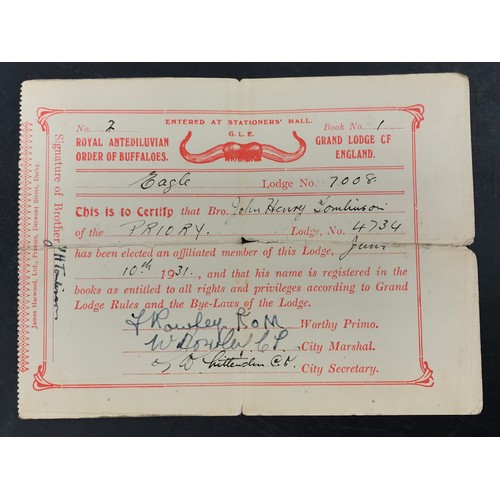 ENTERED AT STATIONERS' HALL.
No. 2
G. L. E.
Book No. 1
ROYAL ANTEDILUVIAN
ORDER OF BUFFALOES.
GRAND LODGE OF
ENGLAND.
Eagle Lodge No. 7008.
This is to Certify that Bro. John Henry Tomlinson
of the PRIORY. Lodge, No. 4734
has been elected an affiliated member of this Lodge, June
10th 1931, and that his name is registered in the
books as entitled to all rights and privileges according to Grand
Lodge Rules and the Bye-Laws of the Lodge.
F Rowley ROM Worthy Primo.
W Rowley C.P. City Marshal.
Chittenden C.P. City Secretary.
Signature of Brother JH Tomlinson
James Harwood, Ltd., Printers, Derwent Street, Derby.